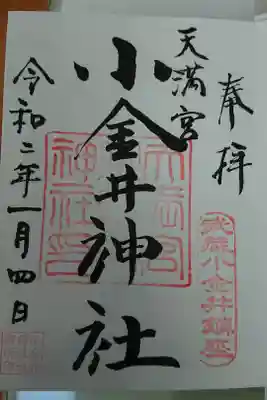 奉拝
天満宮
小金井神社
令和二年一月四日
武蔵小金井鎮座